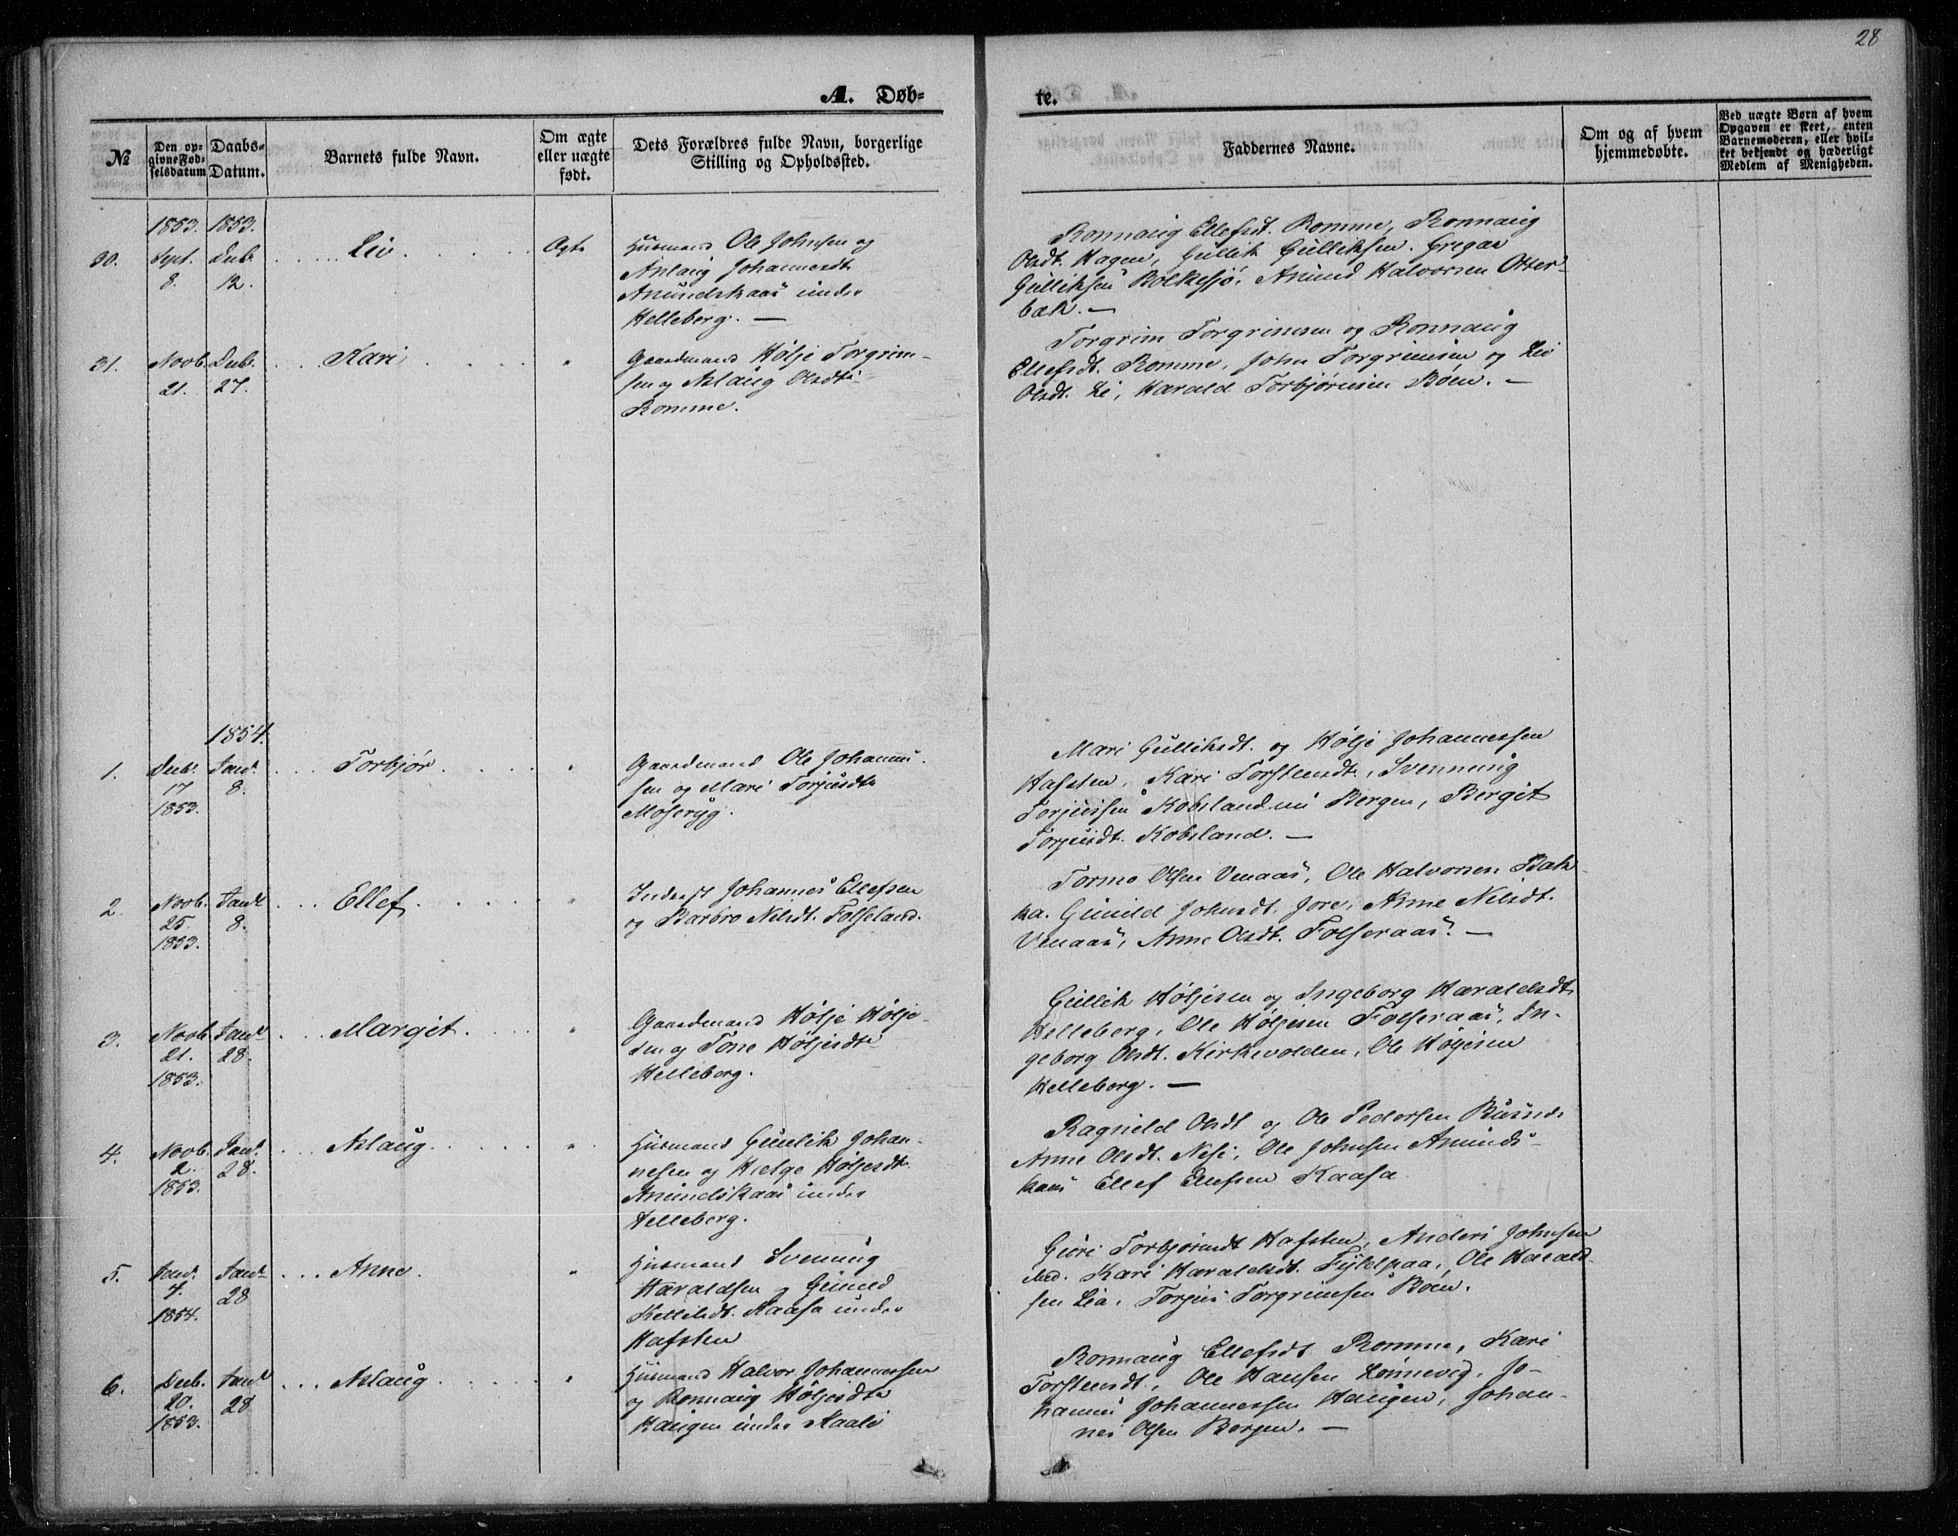 28
A. Døb-
te.
No
Den op-
givne Fød-
selsdatum
Daabs-
Datum.
Barnets fulde Navn.
Om ægte
eller uægte
født.
Dets Forældres fulde Navn, borgerlige
Stilling og Opholdssted.
Faddernes Navne.
Om og af hvem
hjemmedøbte.
Ved uægte Børn af hvem
Opgaven er skeet, enten
Barnemoderen, eller hvil-
ket bekjendt og hæderligt
Medlem af Menigheden.
1853. 1853.
30. Sept. Decb.
8. 12.
Liv
Ægte
Husmand Ole Johnsen og
Aslaug Johannesdt.
Anundskaas under
Helleberg. —
Ronnaug Ellefsdt. Romme, Ronnaug
Olsdt. Hagen, Gullik Gulliksen. Gregar
Gulliksen Bolkesjø, Anund Halvorsen Otter-
bæk. —
31. Novb. Decb.
21. 27.
Kari
"
Gaardmand Hølje Torgrim-
sen og Aslaug Olsdt.
Romme.
Torgrim Torgrimsen og Ronnaug
Ellefsdt. Romme, John Torgrimsen og Liv
Olsdt. Li, Harald Torbjørnsen Bøen. —
1854.
1. Decb. Janr.
17 8.
1853.
Torbjør
"
Gaardmand Ole Johannes-
sen og Mari Torjusdt.
Moseryg.
Mari Gulliksdt. og Hølje Johannessen
Hafsten, Kari Torstensdt., Svennung
Torjussen Kobsland nu Bergen, Bergit
Torjusdt. Kobsland. —
2. Novb. Janr.
25. 8.
1853.
Ellef
"
Inderst Johannes Ellefsen
og Barbro Nilsdt. Folseland.
Tormo Olsen Venaas, Ole Halvorsen Bak-
ka. Gunild Johnsdt. Jore, Anne Nilsdt.
Venaas, Anne Olsdt. Folseraas. —
3. Novb. Janr.
21. 28.
1853.
Margit
"
Gaardmand Hølje Hølje-
sen og Tone Høljesdt.
Helleberg.
Gullik Høljesen og Ingeborg Haraldsdt.
Helleberg, Ole Høljesen Folseraas, In-
geborg Olsdt. Kirkevolden, Ole Høljesen
Helleberg. —
4. Novb. Janr.
2. 28.
1853.
Aslaug
"
Husmand Gunlik Johan-
nesen og Hæge Høljesdt.
Anundskaas under
Helleberg.
Ragnild Olsdt og Ole Pedersen Busnes
Anne Olsdt. Nese, Ole Johnsen Anunds-
kaas Ellef Ellefsen Kaasa
5. Janr. Janr.
4. 28
1854.
Anne
"
Husmand Svenung
Haraldsen og Gunild
Kittilsdt. Kaasa under
Hafsten
Guri Torbjørnsdt Hafsten, Anders Johnsen
ibid. Kari Haraldsdt. Fyldpaa, Ole Harald-
sen Lia, Torjus Torgrimsen Bøen.
6. Decb. Janr.
20. 28
1853.
Aslaug
"
Husmand Halvor Johannessen
og Ronnaug Høljesdt.
Haugen under Kaali
Ronnaug Ellefsdt Romme, Kari
Torstensdt., Ole Hansen Lønnevig, Jo-
hannes Johannessen Haugen, Johan-
nes Olsen Bergen. —